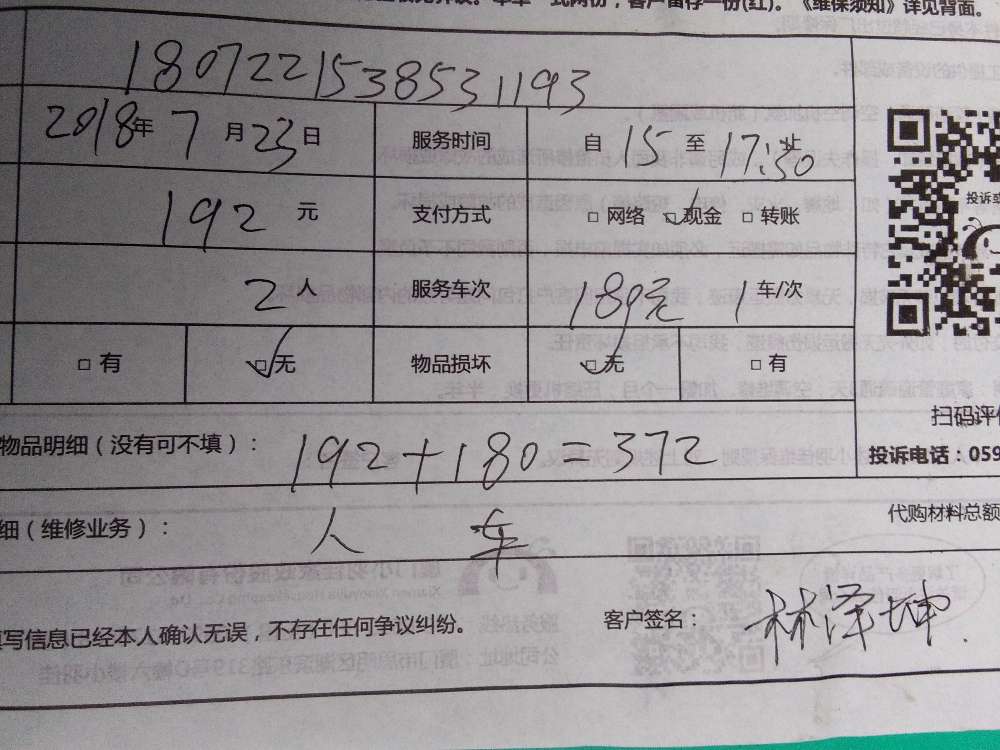 一式两份，客户留存一份(红)。《维保须知》详见背面。
1807221538531193
2018年 7 月 23 日 服务时间 自 15 至 17:30
192 元 支付方式 □ 网络 □ 现金 □ 转账
投诉或
2 人 服务车次 180元 1 车/次
□ 有 □ 无 物品损坏 □ 无 □ 有
扫码评价
物品明细（没有可不填）： 192+180=372
投诉电话：059
代购材料总额
细（维修业务）： 人 车
填写信息已经本人确认无误，不存在任何争议纠纷。 客户签名： 林泽坤